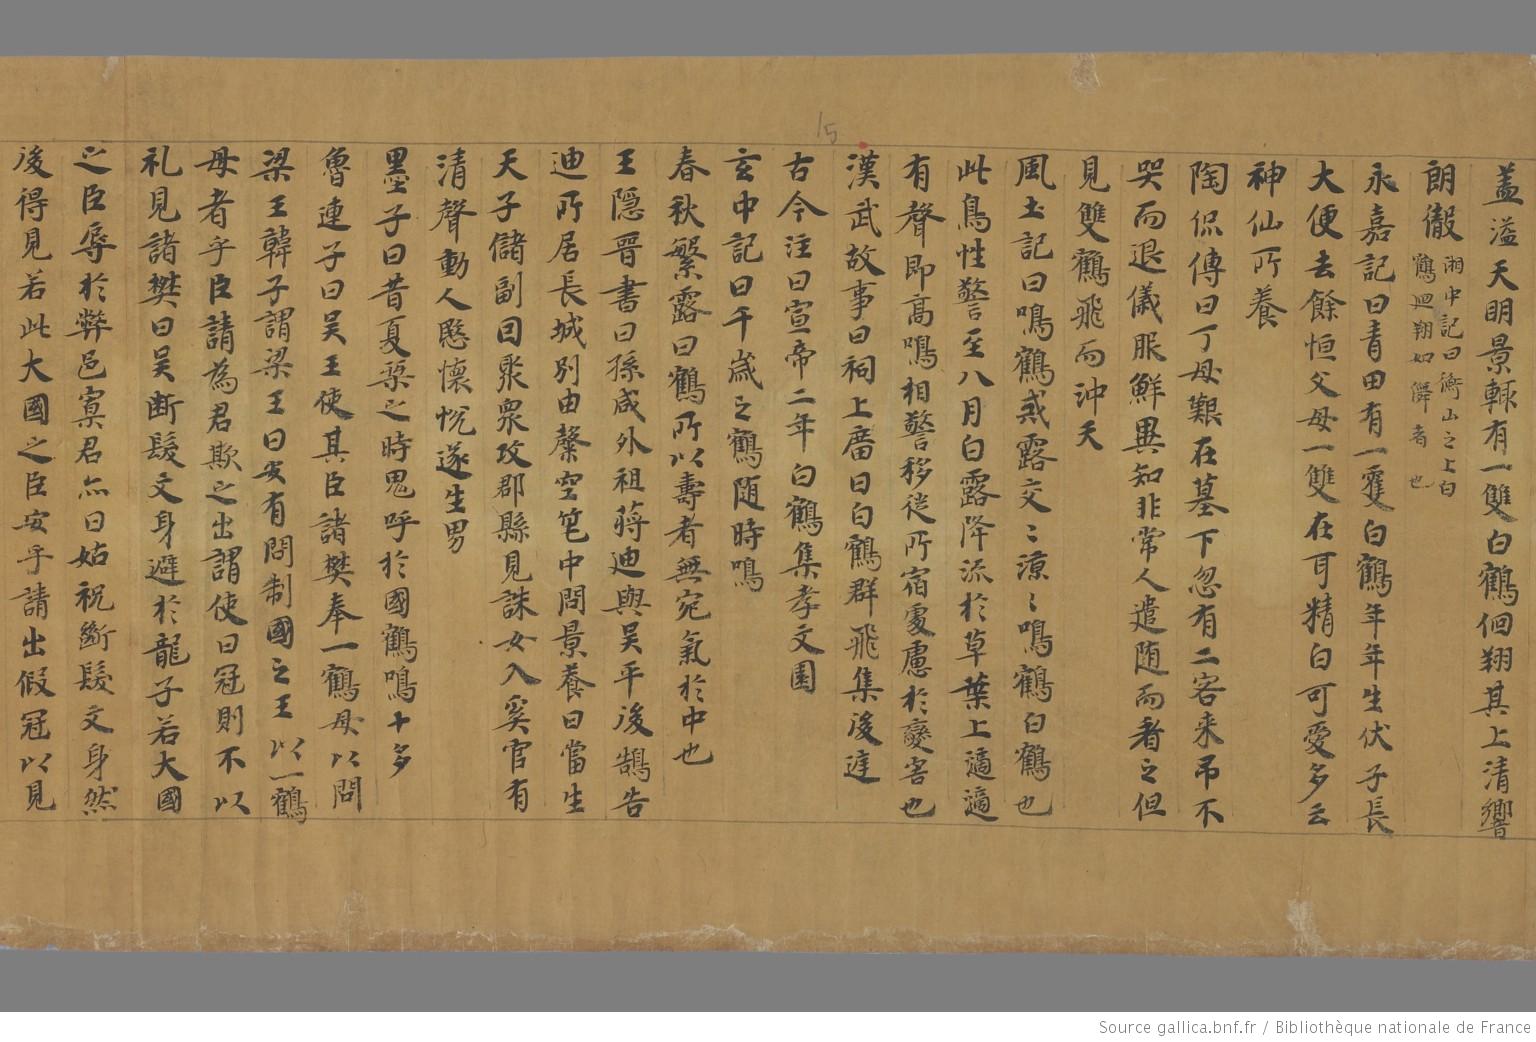 盖溢天明景輙有一雙白鶴佪翔其上清響
朗徹 湘中記曰衡山之上白鶴迴翔如儛者也
永嘉記曰青田有一雙白鶴年年生伏子長
大便去餘恒父母一雙在可精白可愛多云
神仙所養
陶侃傳曰丁母艱在墓下忽有二客来吊不
哭而退儀服鮮異知非常人遣随而看之但
見雙鶴飛而沖天
風土記曰鳴鶴戒露交〻涼〻鳴鶴白鶴也
此鳥性警至八月白露降流於草葉上適適
有聲即高鳴相警移徙所宿處慮於變害也
漢武故事曰祠上廣曰白鶴群飛集後廷
古今注曰宣帝二年白鶴集孝文園
玄中記曰千歲之鶴随時鳴
春秋繁露曰鶴所以壽者無宛氣於中也
王隱晉書曰孫咸外祖蔣迪與吴平後鵠告
迪所居長城別由槃空笔中問景養曰當生
天子儲副因衆衆攻郡縣見誅女入奚官有
清聲動人愍懷悅遂生男
墨子曰昔夏桀之時鬼呼於國鶴鳴十多
魯連子曰吴王使其臣諸樊奉一鶴母以問
梁王韓子謂梁王曰安有問制國之王以一鶴
母者乎臣請為君欺之出謂使曰冠則不以
礼見諸樊曰吴断髮文身避於龍子若大國
之臣辱於弊邑寡君亦曰姑祝斷髮文身然
後得見若此大國之臣安乎請出假冠以見
15
Source gallica.bnf.fr / Bibliothèque nationale de France